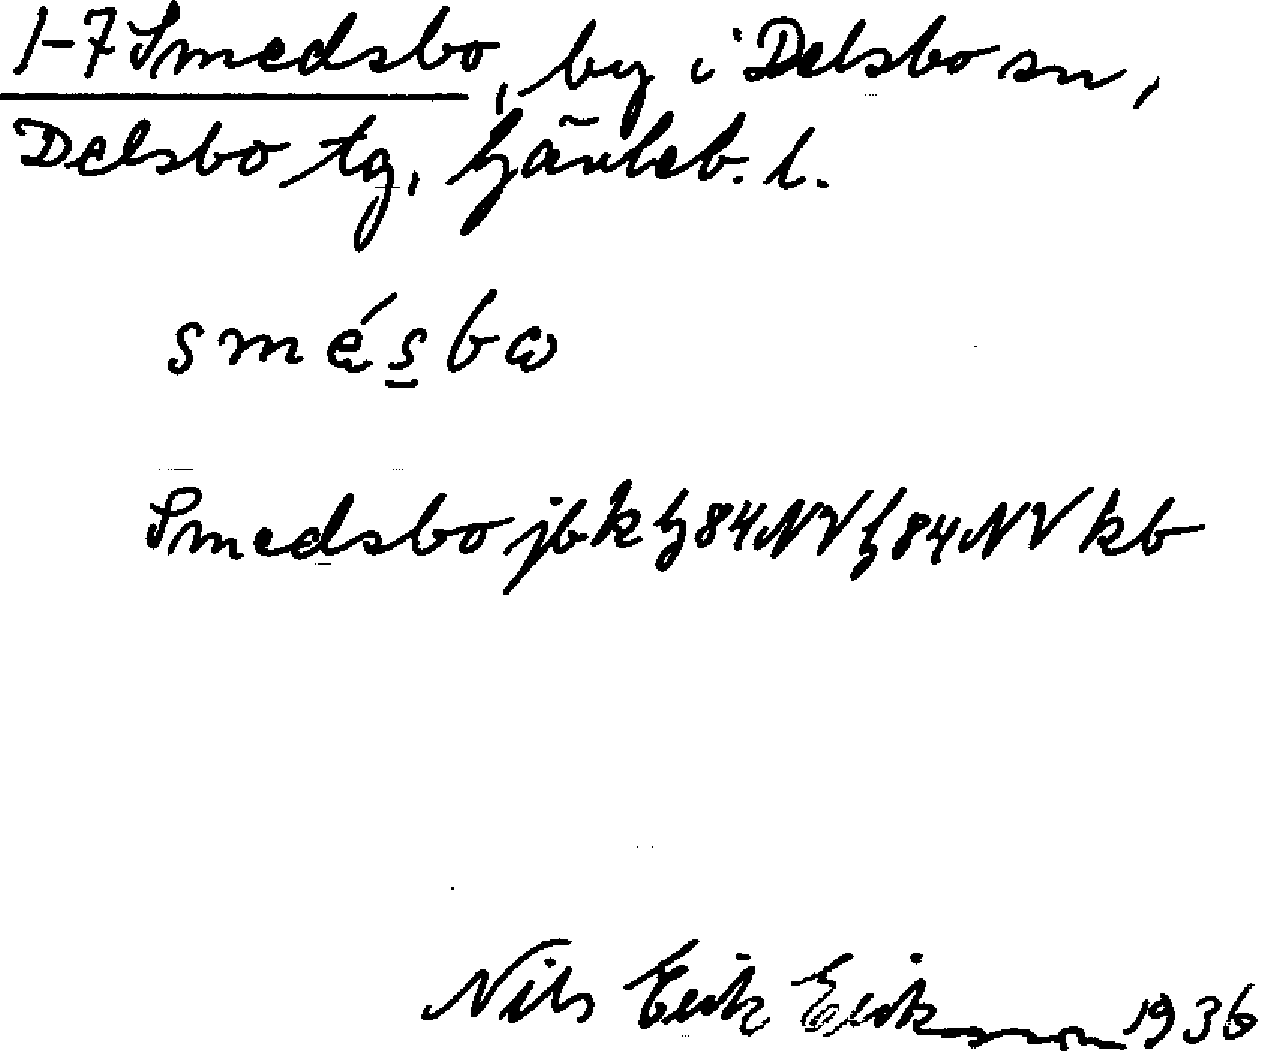 1-7 Smedsbo, by i Delsbo sn,
Delsbo tg, Gävleb. l.
smésbω
Smedsbo jbk G84NV g84NV kb
Nils Erik Eriksson 1936